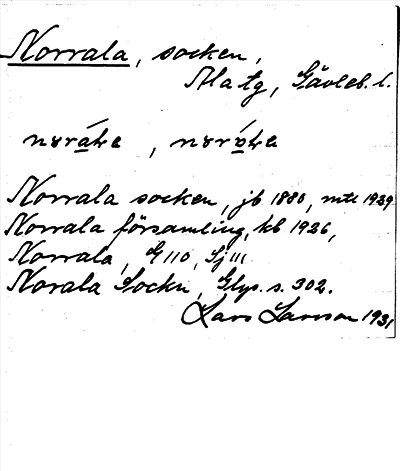 Norrala, socken,
Ala tg, Gävleb. l.
Norrala socken, jb 1880, mtl 1939
Norrala församling, kb 1926,
Norrala, G 110, Sj III
Norala Sockn, Glys. s. 302.
Lars Larsson 1931